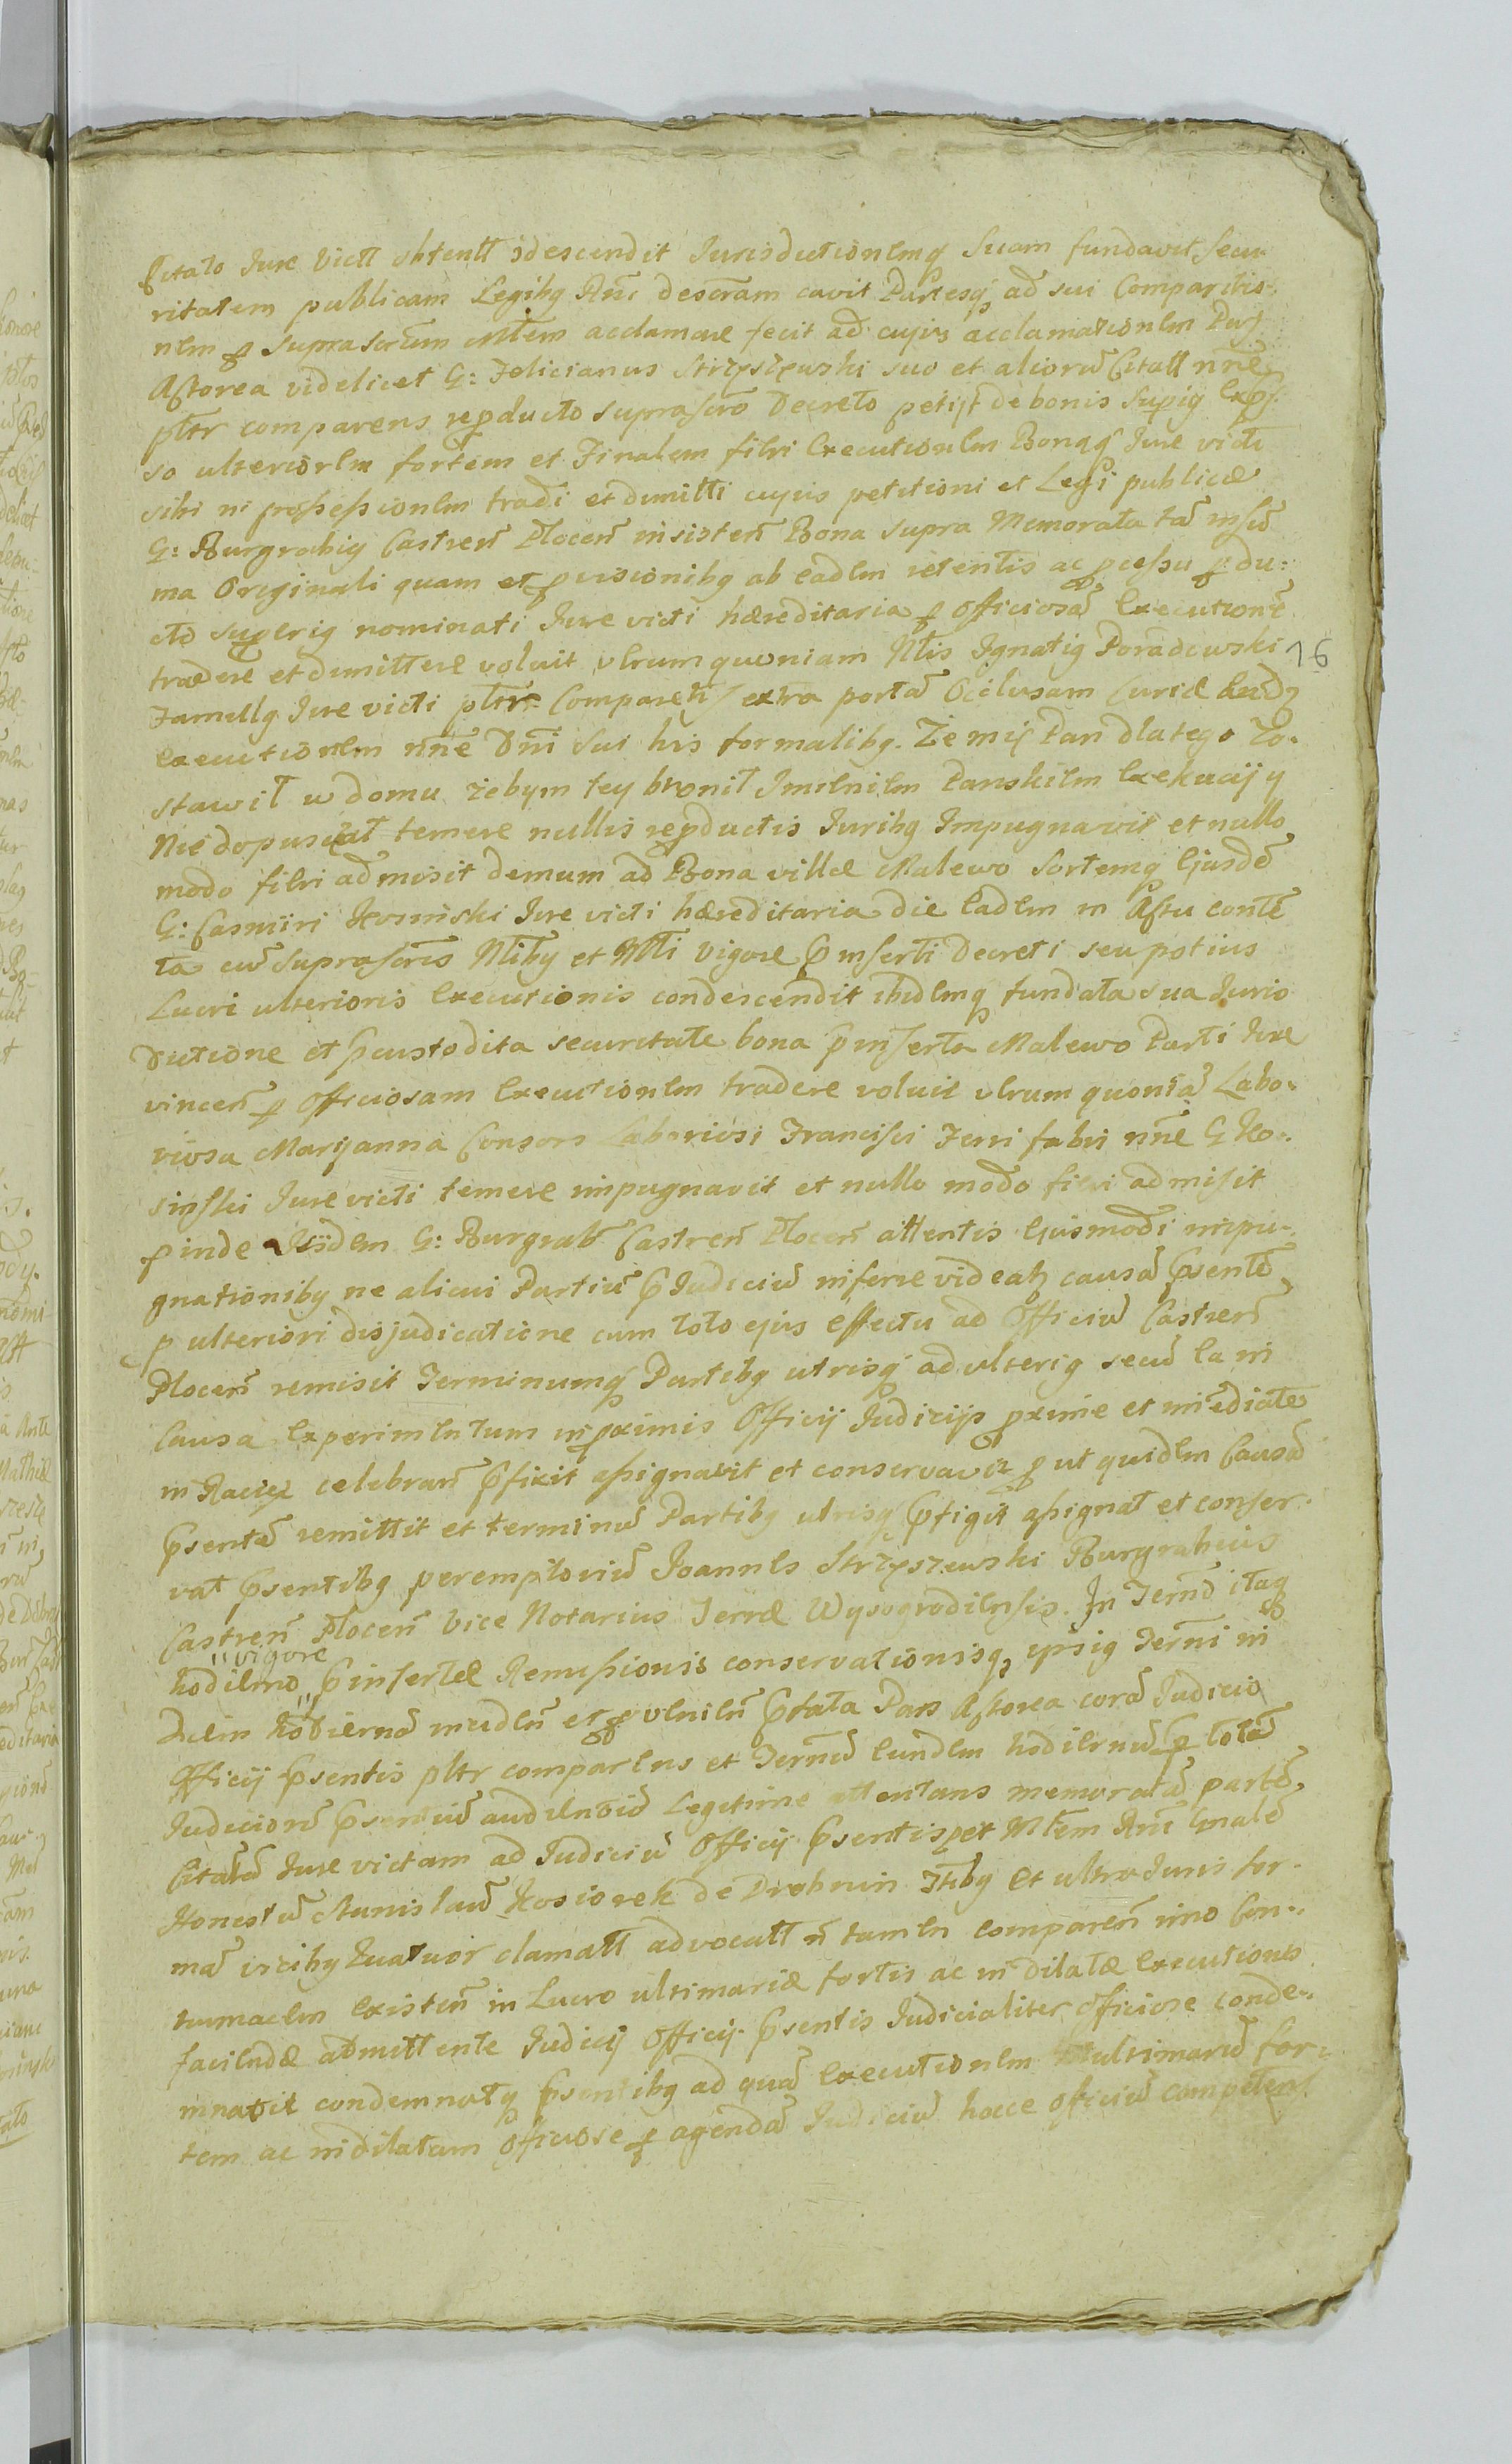 Citato Jure Victt obtentt descendit Jurisdictionemq suam fundavit secu
ritatem publicam Legibq Rni descram cavit Partesq ad sui Comparitio-
nem p suprascrum Mlem acclamare fecit ad cujus acclamationem Pars
Actorea videlicet G: Felicianus Strzyszewski suo et aliorū Citatt nne
pltr comparens repducto suprascro Decreto petijt de bonis Supiq Exps
so ulteriorem fortem et Finalem fieri Executionem Bonaq Jure victi
sibi in possessionem tradi et dimitti cujus petitioni et Legi publicæ
G: Burgrabiq Castren Plocen insisten Bona supra Memorata tā in sū
ma Originali quam et p visionibq ab eadem retentis ac pcessu p du-
cto superiq nominati Jure victi hæreditaria p officiosā Executionē
tradere et dimittere voluit vlrum quoniam Nlis Ignatiq Poradowski
Famullq Jure victi pltr Comparen extra portā Occlusam Curiæ
Executionem nne Dni sui his formalibq. Ze mię Pan dlatego zo-
stawił w domu żebym tey bronił Imieniem Panskiem Exekucij y
Nie dopuscał temere nullis repductis Juribq Impugnavit et nullo
modo fieri admisit demum ad Bona villæ Malewo Sortemq Ejusdē
G: Casmiri Kosinski Jure victi hæreditaria die Eadem in Actu contē
ta cū Suprascris Nlibq et Mlli vigore p inserti Decreti seu potius
Lucri ulterioris Executionis condescendit ibidemq fundata sua Juris
dictione et pcustodita securitate bona p inserta Malewo Parti Jure
vincen p Officiosam Executionem tradere voluit vlrum quoniā Labo-
riosa Maryanna Consors Laboriosi Francisci Ferri fabri nne G Ko-
sinski Jure victi temere impugnavit et nullo modo fieri admisit
pinde Isdem G: Burgrab Castren Plocen attentis Ejusmodi impu-
gnationibq ne alicui Partiū pJudiciū inferre videatz causā psentē
p ulteriori disjudicatione cum toto ejus effectu ad Officiū Castren
Plocen remisit Terminumq Partibq utrisq ad ulteriq secū Ea in
Causa Experimentum in pximis Officij Judicijs pxime et imediate
in Raciąz celebran pfixit assignavit et conservavit p ut quidem Causā
psentē remittit et terminū Partibq utrisq pfigit assignat et conser-
vat psentibq peremptoriū Joannes Strzyszewski Burgrabius
Castren Plocen Vice Notarius Terræ Wyszogrodiensis. In Termō itaq
hodierno "vigore" p insertæ Remissionis conservationisq, ipsiq Termi in
Diem hodiernā inciden et p venien pfata Pars Actorea corā Judicio
Officij psentis pltr comparens et Termū Eundem hodiernū p totā
Judiciorū psentiū audientiā Legitime attentans memoratā partē
Citatā Jure victam ad Judiciū Officij psentis per Mlem Rni Gnalē
Honestū Stanislaū Kosiorek de Drobnin Itibq et ultra Juris for-
mā vicibq Quatuor clamatt advocatt n tamen comparen imo Con-
tumacem Existen in Lucro ultimariæ fortis ac in dilatæ Executionis
faciendæ admittente Judicij Officij psentis Judicialiter officiose conde-
mnavit condemnatq psentibq ad quā Executionem ultimariā for-
tem ac indilatam officiose p agendā Judiciū hocce officiū competens
16